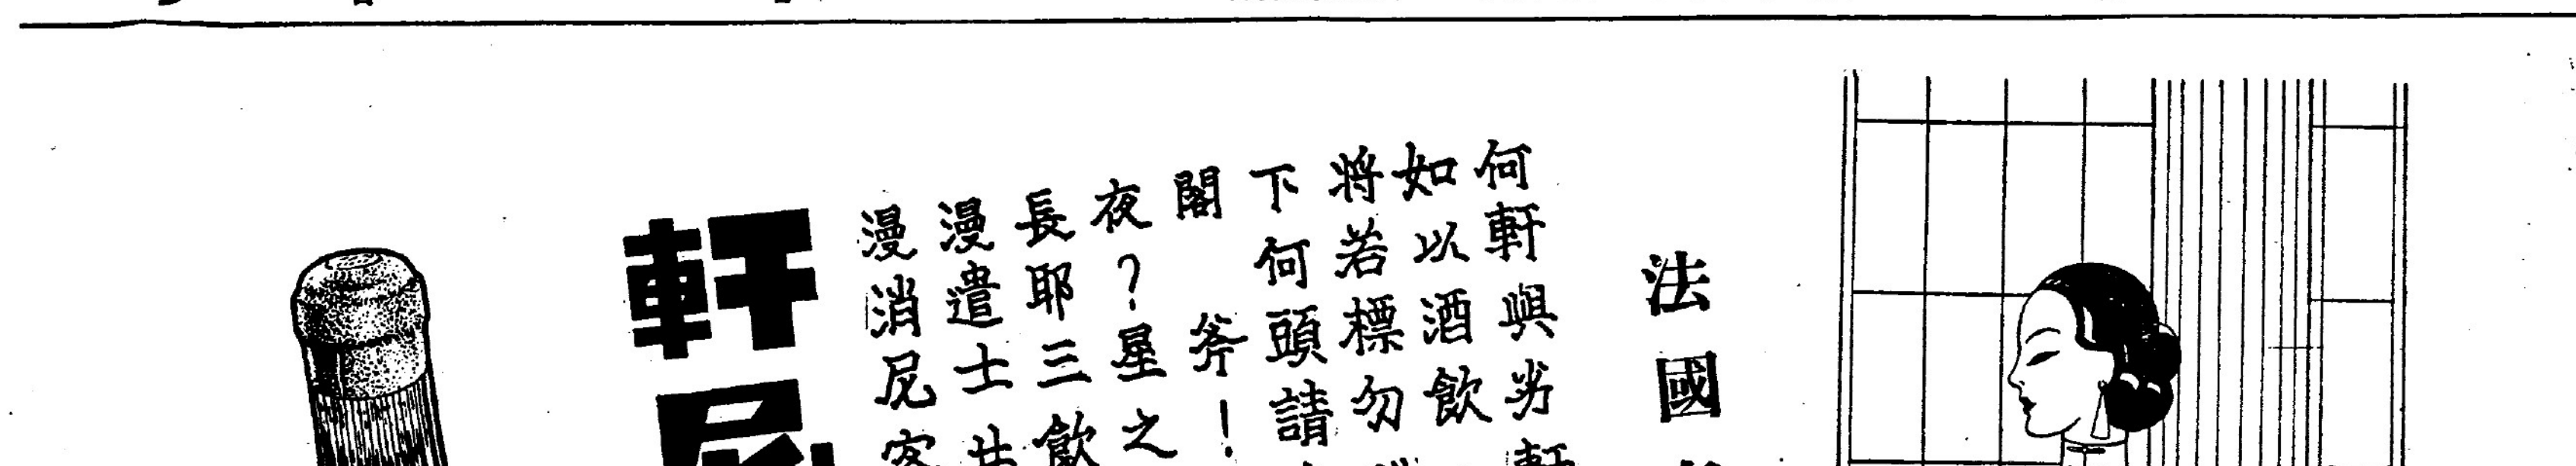 軒尼
漫漫長夜閣下將如何
消遣耶?何若以軒
尼士三星斧頭標酒與
客共飲之!請勿飲劣
法國